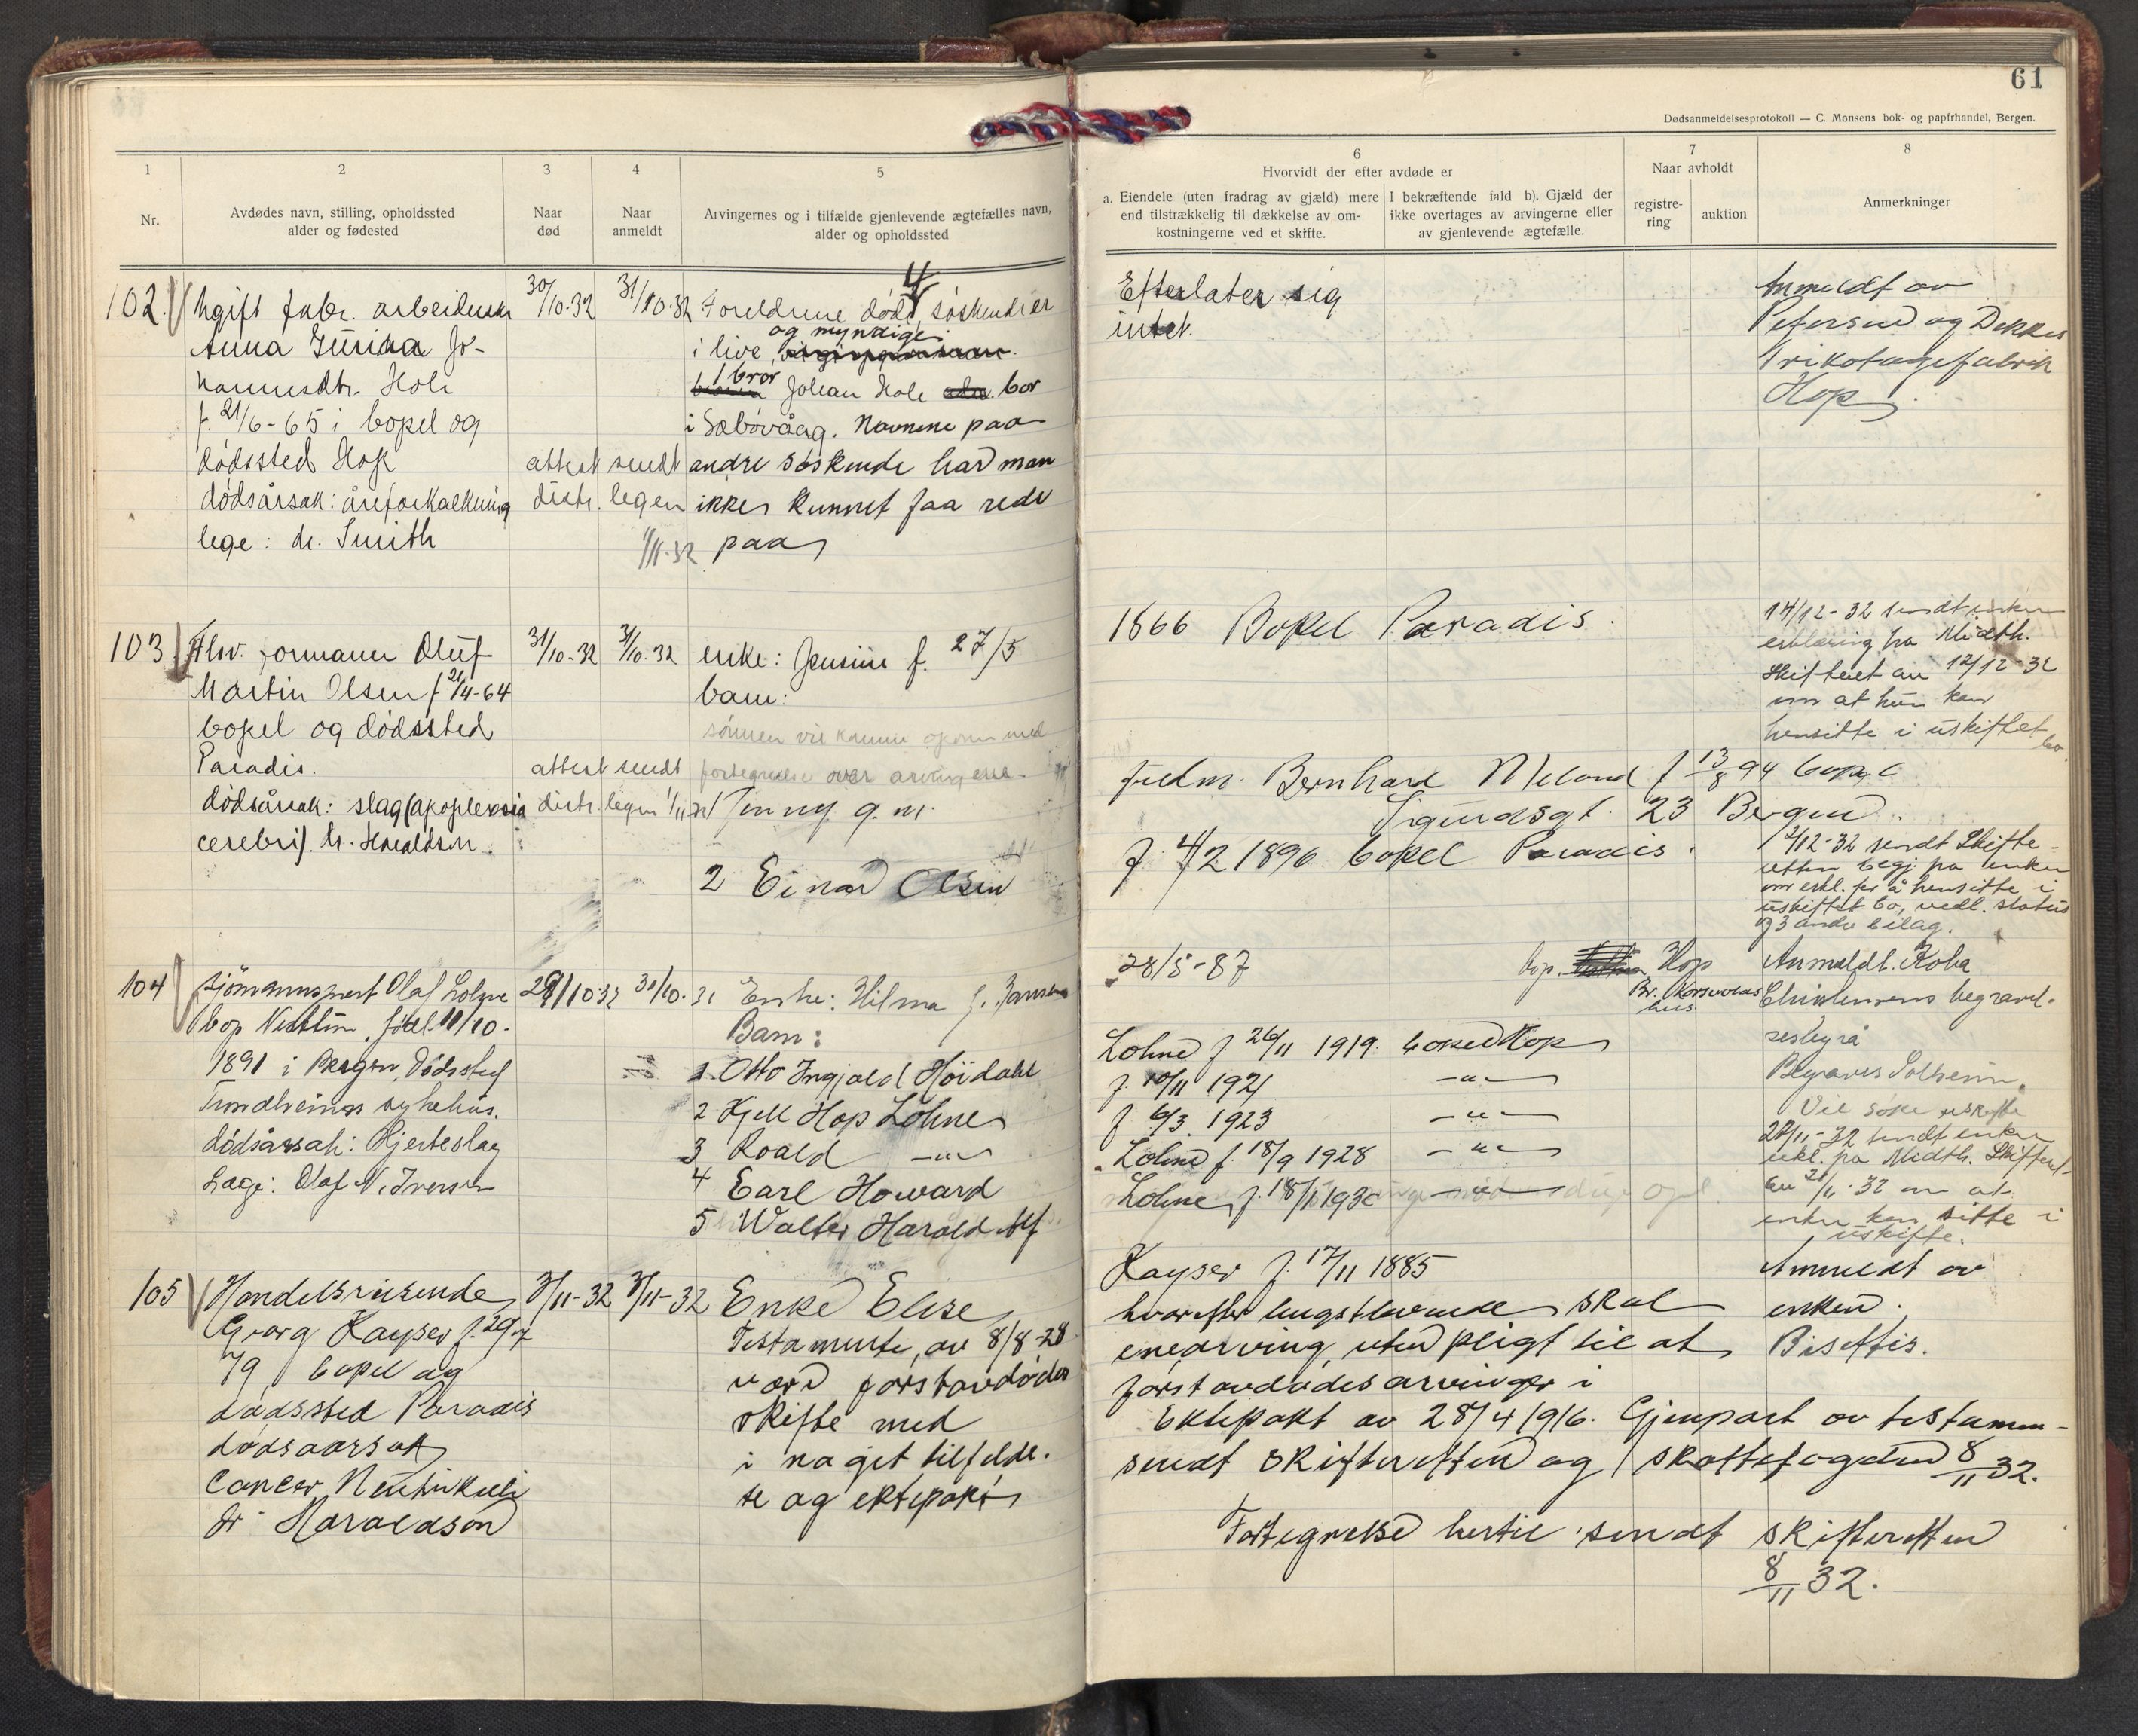 61
Dødsanmeldelsesprotokoll — C. Monsens bok- og papirhandel, Bergen.
1
Nr.
2
Avdødes navn, stilling, opholdssted
alder og fødested
3
Naar
død
4
Naar
anmeldt
5
Arvingernes og i tilfælde gjenlevende ægtefælles navn,
alder og opholdssted
6
Hvorvidt der efter avdøde er
a. Eiendele (uten fradrag av gjæld) mere
end tilstrækkelig til dækkelse av om-
kostningerne ved et skifte.
I bekræftende fald b). Gjæld der
ikke overtages av arvingerne eller
av gjenlevende ægtefælle.
7
Naar avholdt
registre-
ring
auktion
8
Anmerkninger
102
Ugift fabr. arbeiderske
Anna Jo-
hannesdtr. Hole
f. 21/6-65 i bopel og
dødssted Hop
dødsårsak: åreforkalkning
lege: dr. Smith
30/10-32
31/10-32
attest sendt
distr. legen
1/11-32
Foreldrene døde 4 søskende er
i live, og myndige.
1 bror Johan Hole bor
i Sæbövåag. Navnene paa
andre søskende har man
ikke kunnet faa rede
paa
Efterlater sig
intet.
Anmeldt av
Petersen og Dekkes
Trikotagefabrik
Hop.
103
formann Oluf
Martin Olsen f 21/4-64
bopel og dødssted
Paradis.
dødsårsak: slag (apoplexia
cerebri). dr. Haraldson.
31/10-32
31/10-32
attest sendt
distr. legen 1/11 32
enke: Jensine f. 27/5
barn:
sønnen vil komme med
fortegnelse over arvingene.
1 Jenny g. m.
2 Einar Olsen
1866 Bopel Paradis.
fuldm. Bernhard Meland f 13/8 94 bopel
Sigurdsgt. 23 Bergen.
f 4/2 1896 bopel Paradis.
14/12-32 sendt enken
erklæring fra Midth.
Skifteret av 12/12-32
om at hun kan
hensitte i uskiftet
bo
2/12-32 sendt Skifte-
retten begj. fra enken
om erkl. for å hensitte i
uskiftet bo, vedl. status
og 3 andre bilag.
104
Sjömannsprest Olaf Lohne
bop Nesttun, född 11/10-
1891 i Bergen, Dödssted
Trondheims sykehus.
dödsårsak: Hjerteslag
Læge: Olaf N. Iversen
29/10-32
31/10-32
Enke: Hilma f. Jansen
Barn:
1 Otto Ingjald Höidahl
2 Kjell Hop Lohne
3 Roald —"—
4 Earl Howard
5 Walter Harald Alf
28/5-87
bop. Hop
Lohne f. 26/11 1919. bopel Hop
f. 10/11 1921 —"—
f 6/3 1923 —"—
Lohne f. 18/9 1928 —"—
Lohne f. 18/11 1930 —"—
Anmeldt. Roba
Christensens begravel-
sesbyrå
Begraves Solheim.
Vil søke uskifte
28/11-32 sendt enken
erkl. fra Midth. Skifteret
av 21/11-32 om at
enken kan sitte i
uskifte.
105
Handelsreisende
Georg Kayser f. 29/7
79 bopel og
dødssted Paradis
dødsaarsak
Cancer Ventrikuli
dr. Haraldson
3/11-32
3/11-32
Enke Elise
Testamente, av 8/8-28
være førstavdødes
skifte med
i noget tilfelde.
te og ektepakt
Kayser f. 17/11 1885
hvorefter lengstlevende skal
enearving, uten pligt til at
førstavdødes arvinger i
Ektepakt av 28/4 1916. Gjenpart av testamen-
sendt Skifteretten og skattefogden 8/11 32.
Fortegnelse hertil sendt skifteretten
8/11 32.
Anmeldt av
enken.
Bisettes.